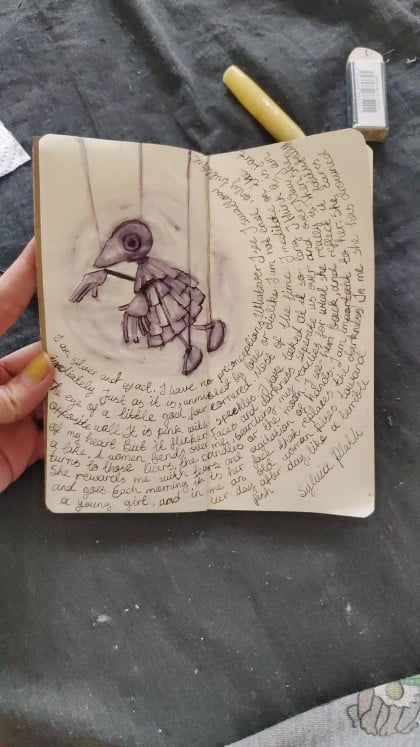 I am silver and exact. I have no preconceptions. Whatever I see I swallow
imediatly just as it is, unmisted by love or dislike. I am not
The eye of a little god, four cornered. Most of the time I
opposite wall. It is pink, with speckles. I have looked at it so long I think
of my heart. But it flickers. Faces and darkness separate us over and over.
a lake. A women bends over me, searching my reaches for what she really is.
turns to those liars, the candles or the moon. I see her back, and reflect it
She rewards me with tears and agitation of hands. I am important to her. She
and goes. Each morning it is her face that replaces the darkness. In me she has drowned
a young girl, and in me an old woman rises toward
her day after day like a terrible
fish
Sylvia Plath